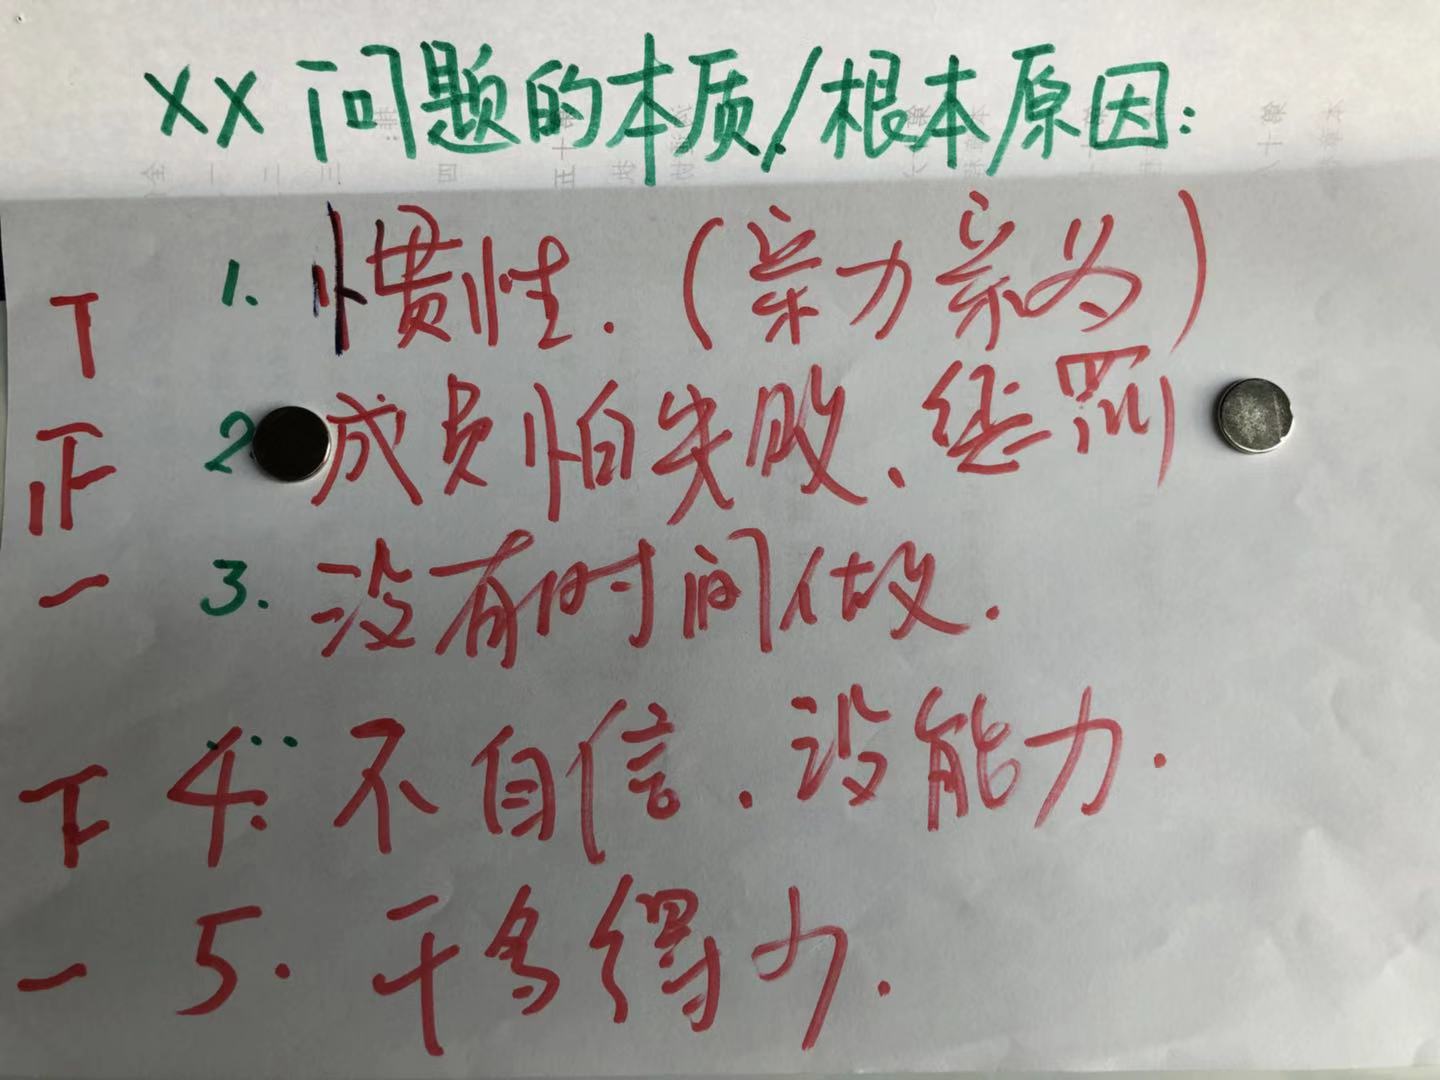 XX 问题的本质/根本原因:
丅 1. 惯性.(亲力亲为)
正 2 成员怕失败、惩罚
一 3. 没有时间做.
下 4. 不自信.没能力.
一 5. 干多得少.